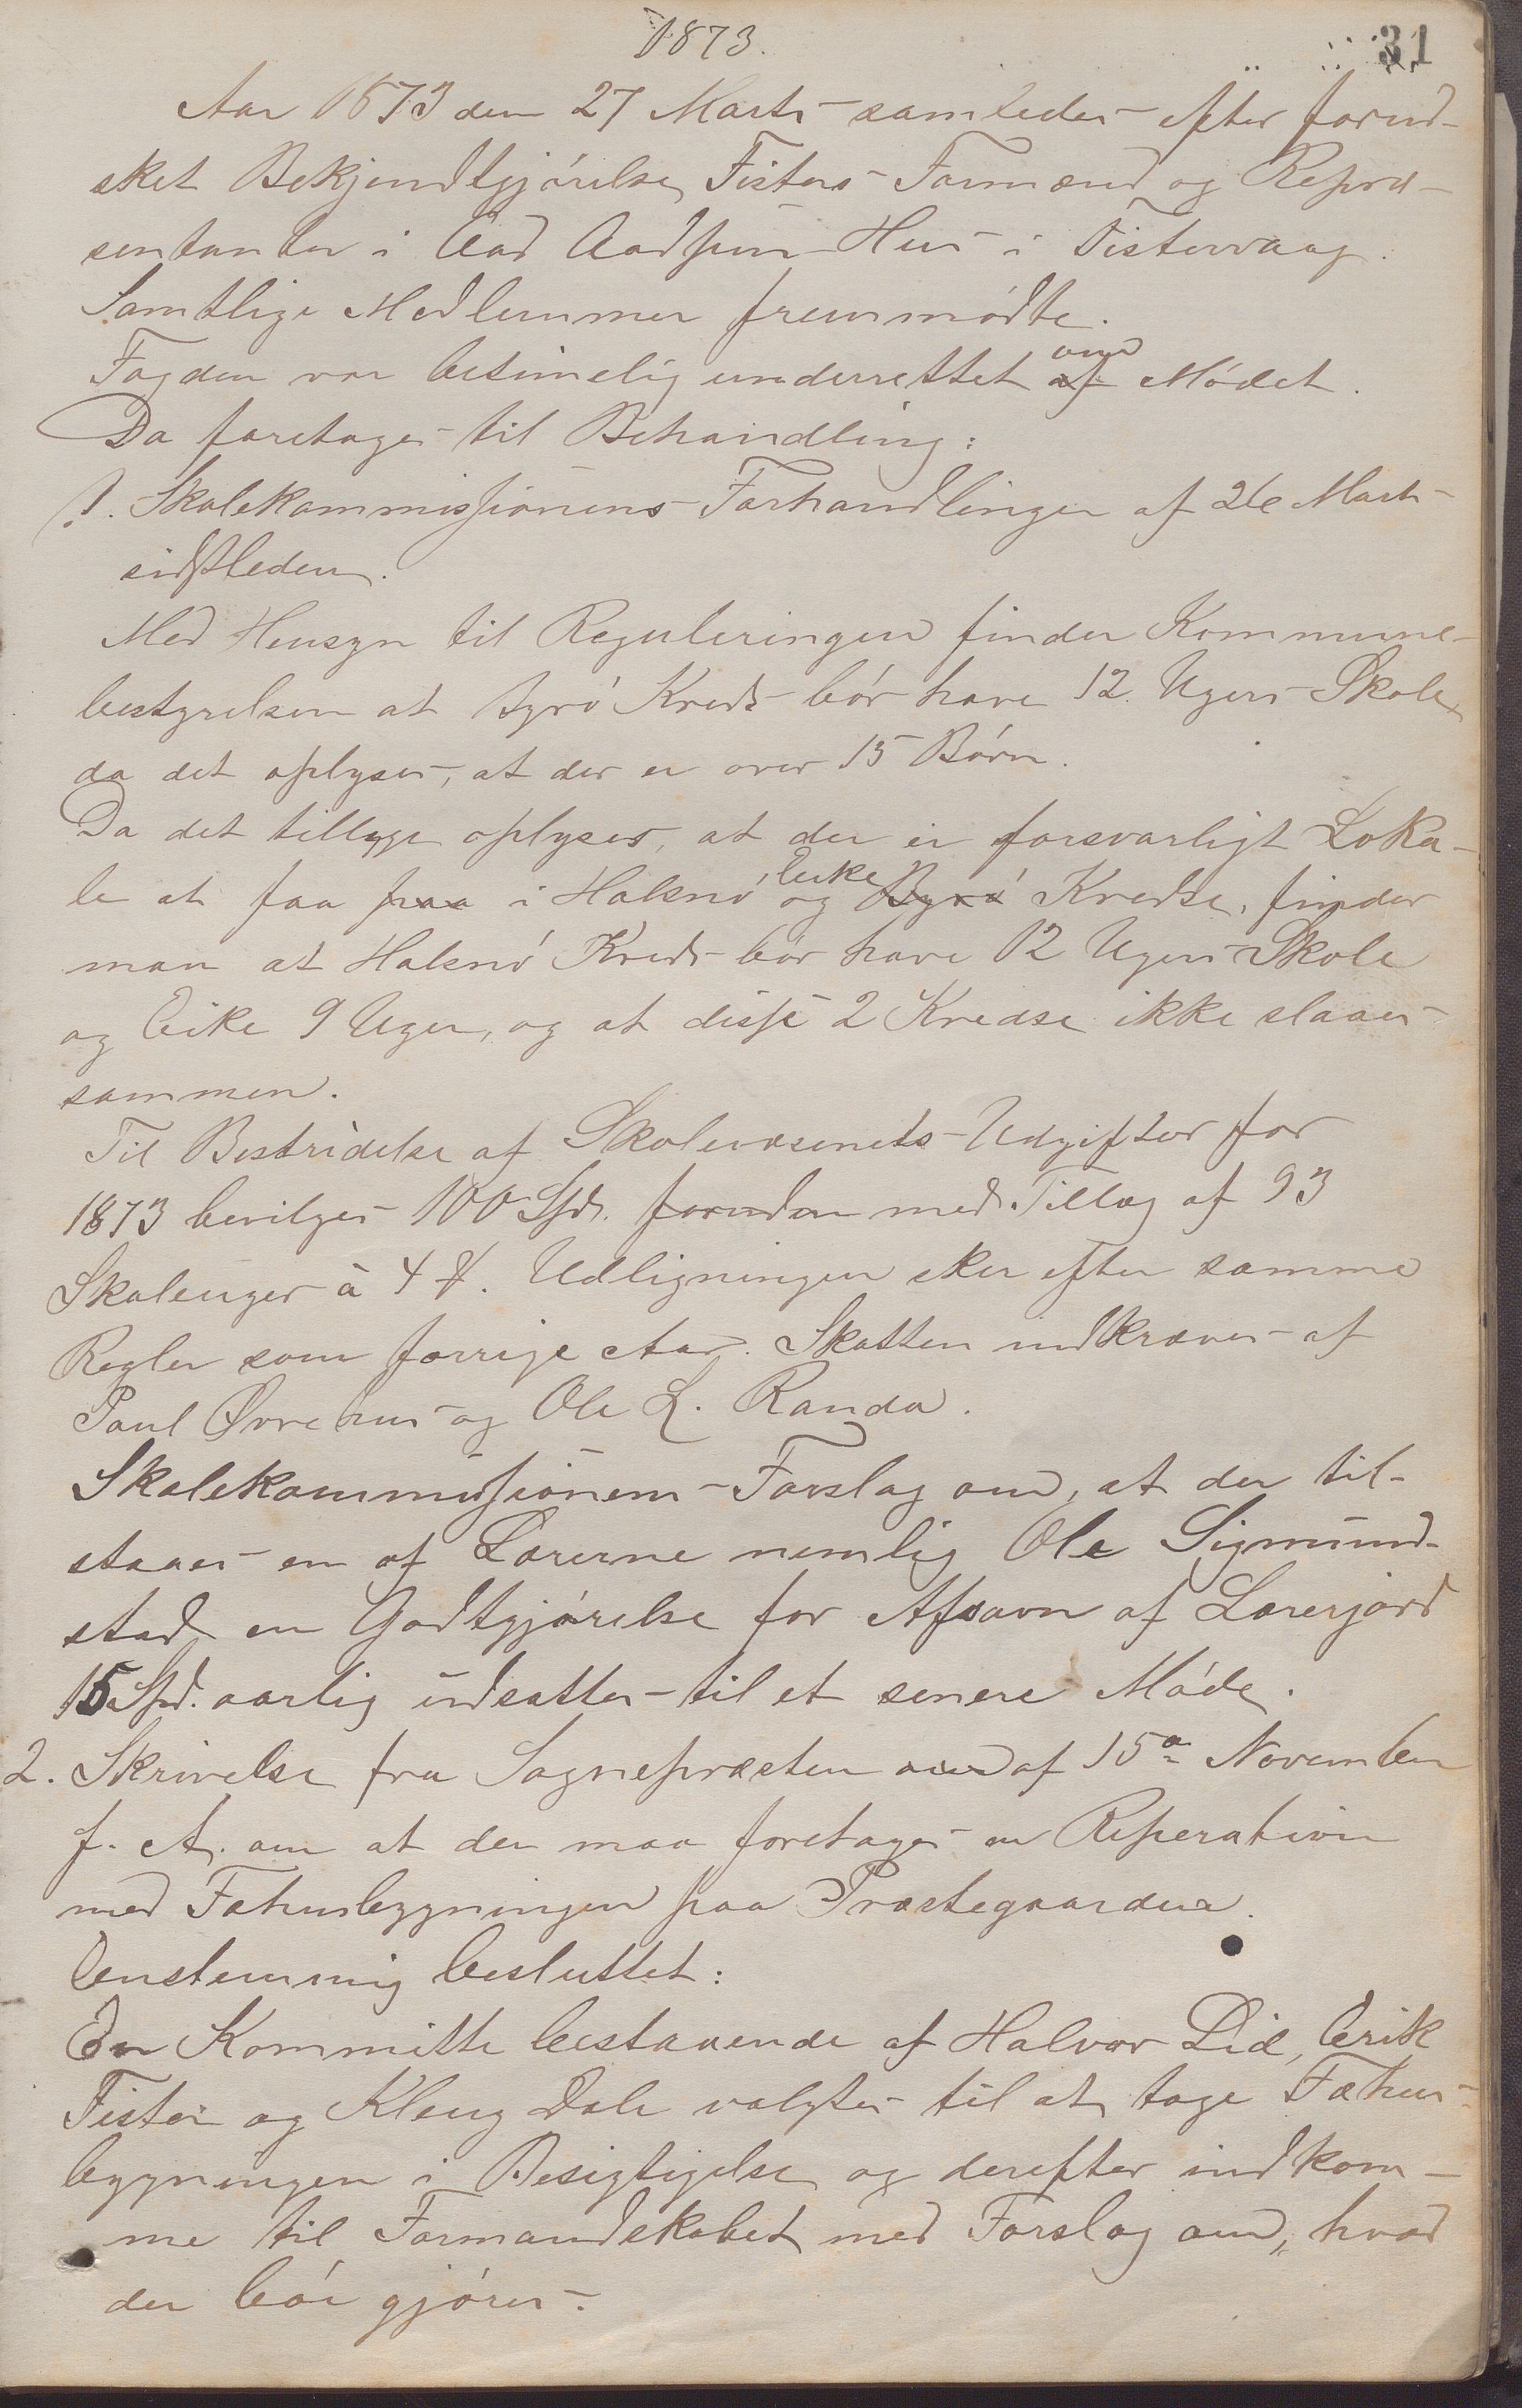 1873.
31
Aar 1873 den 27 Marts samledes efter forud-
sket Bekjendtgjörelse Fisters Formænd og Repræ-
sentanter i Aad Aadsens Hus i Fistervaag.
Samtlige Medlemmer fremmödte.
Fogden var betimelig underrettet af om Mödet.
Da foretoges til Behandling:
1. Skolekommissionens Forhandlinger af 26 Marts
sidstleden.
Med Hensyn til Reguleringen finder Kommune-
bestyrelsen at Byrö Kreds bör have 12 Ugers Skole,
da det oplyses, at der er over 15 Börn.
Da det tillige oplyses, at der er forsvarligt Loka-
le at faa paa i Halsnö og Byrö Eike Kredse, finder
man at Halsnö Kreds bör have 12 Ugers Skole
og Eike 9 Uger, og at disse 2 Kredse ikke slaaes
sammen.
Til Bestridelse af Skolevæsenets Udgifter for
1873 bevilges 100 Spd. foruden med Tillæg af 93
Skoleuger à 4 ₰. Udligningen sker efter samme
Regler som forrige Aar. Skatten indkræves af
Paul Øvrehus og Ole L. Randa.
Skolekommissionens Forslag om, at der til-
staaes en af Lærerne nemlig Ole Sigmund-
stad en Godtgjörelse for Afsavn af Lærerjord
15 Spd. aarlig udsattes til et senere Möde.
2. Skrivelse fra Sognepræsten om af 15de November
f. A. om at der maa foretages en Reperation
med Fæhusbygningen paa Præstegaarden.
Eenstemmig besluttet:
En Kommitte bestaaende af Halvor Lid, Erik
Fister og Kleng Dale valgtes til at tage Fæhus-
bygningen i Besigtigelse og derefter indkom-
me til Formandskabet med Forslag om, hvad
der bör gjöres.